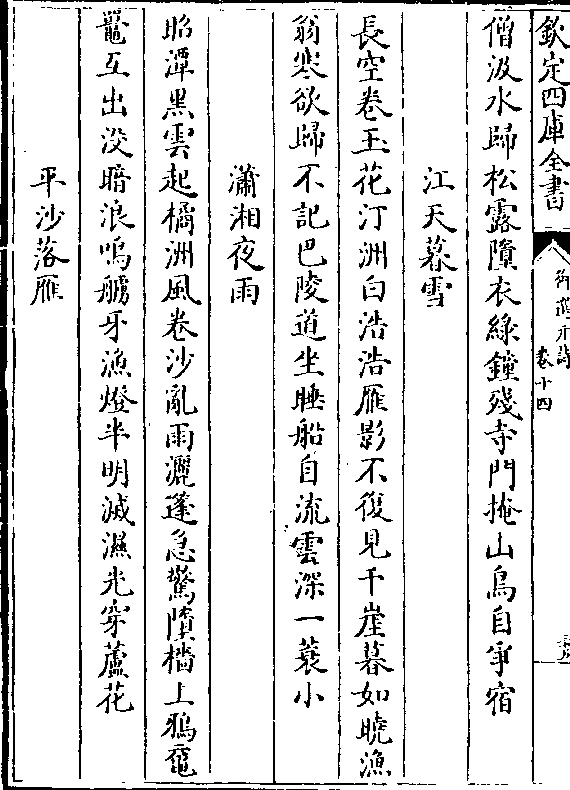 欽定四庫全書
御選元詩
卷十四
僧汲水歸松露隕衣綠鐘殘寺門掩山鳥自爭宿
江天暮雪
長空卷玉花汀洲白浩浩雁影不復見千崖暮如曉漁
翁寒欲歸不記巴陵道坐睡船自流雲深一蓑小
瀟湘夜雨
昭潭黑雲起橘洲風卷沙亂雨灑蓬急驚隕檣上鴉黿
鼉互出沒暗浪鳴艣牙漁燈半明滅濕光穿蘆花
平沙落雁